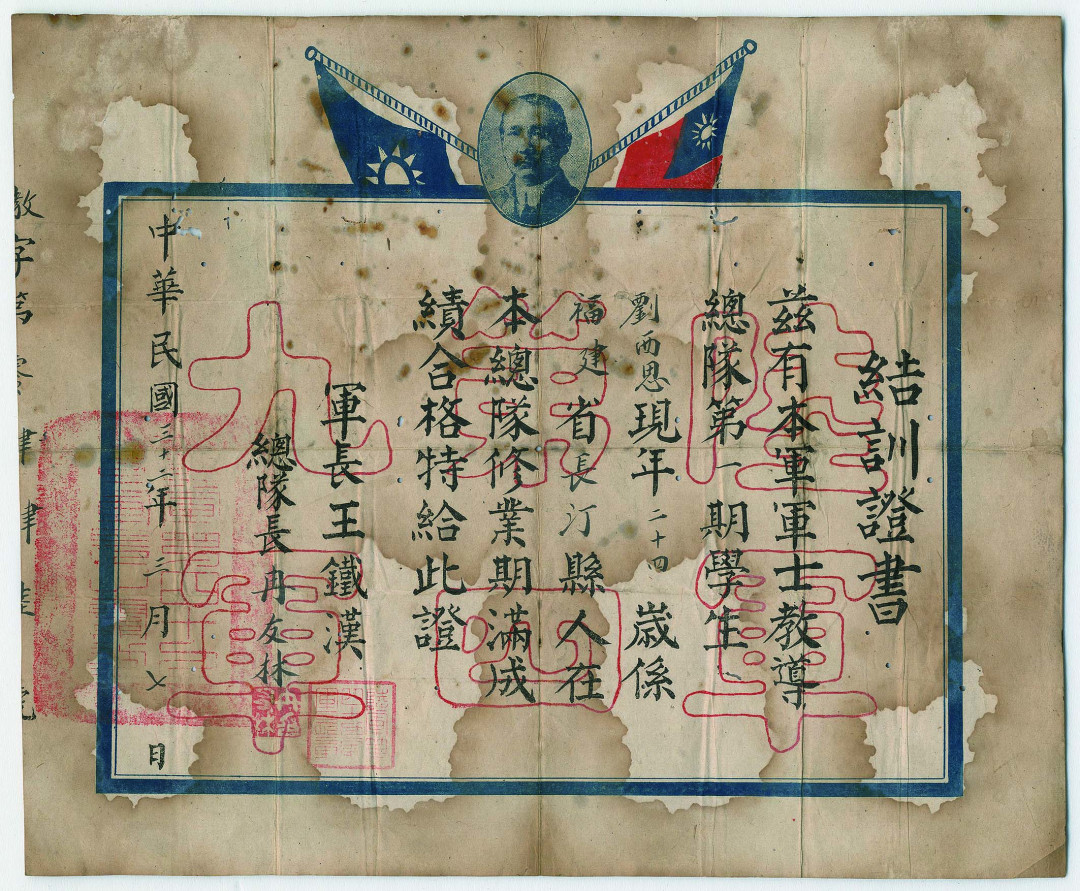 結訓證書
茲有本軍軍士教導
總隊第一期學生
劉西恩現年二十四歲係
福建省長汀縣人在
本總隊修業期滿成
績合格特給此證
軍長王鐵漢
總隊長冉友林
中華民國三十二年三月七日
陸軍
第
九軍
教字第零肆肆號